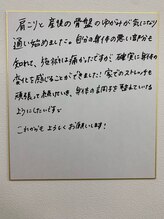 肩こりと産後の骨盤のゆがみが気になり
通い始めました。自分の身体の悪い部分も
知れて、施術は痛かったですが、確実に身体の
変化を感じることができました！家でのストレッチも
頑張って続けていき、身体の調子を整えていける
ようにしたいです。
これからもよろしくお願いします！